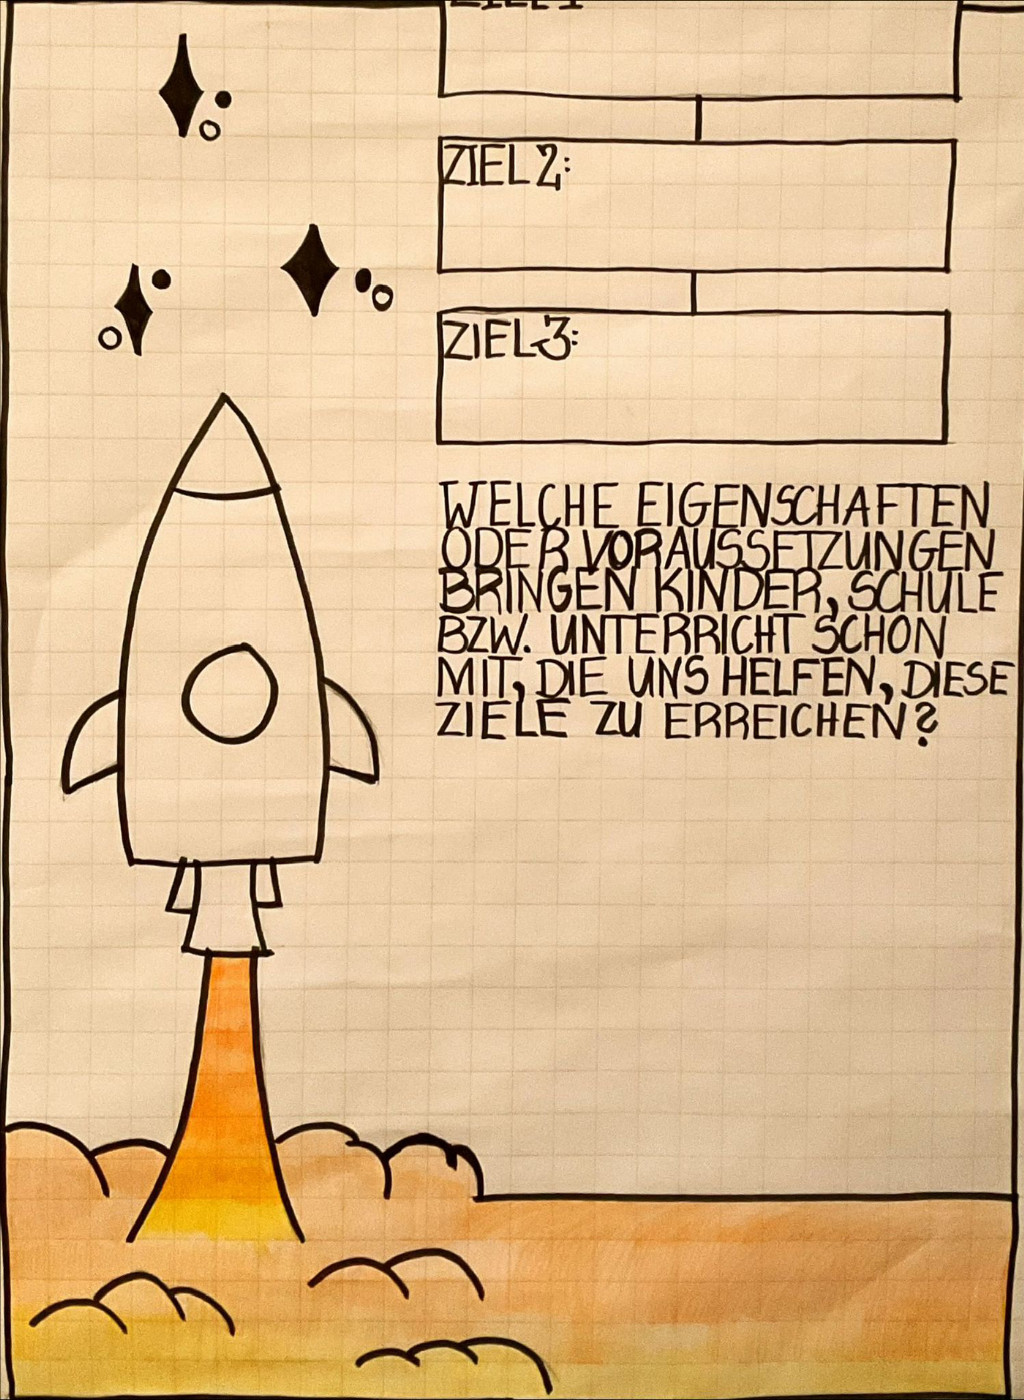 ZIEL 1
ZIEL 2:
ZIEL 3:
WELCHE EIGENSCHAFTEN
ODER VORAUSSETZUNGEN
BRINGEN KINDER, SCHULE
BZW. UNTERRICHT SCHON
MIT, DIE UNS HELFEN, DIESE
ZIELE ZU ERREICHEN?